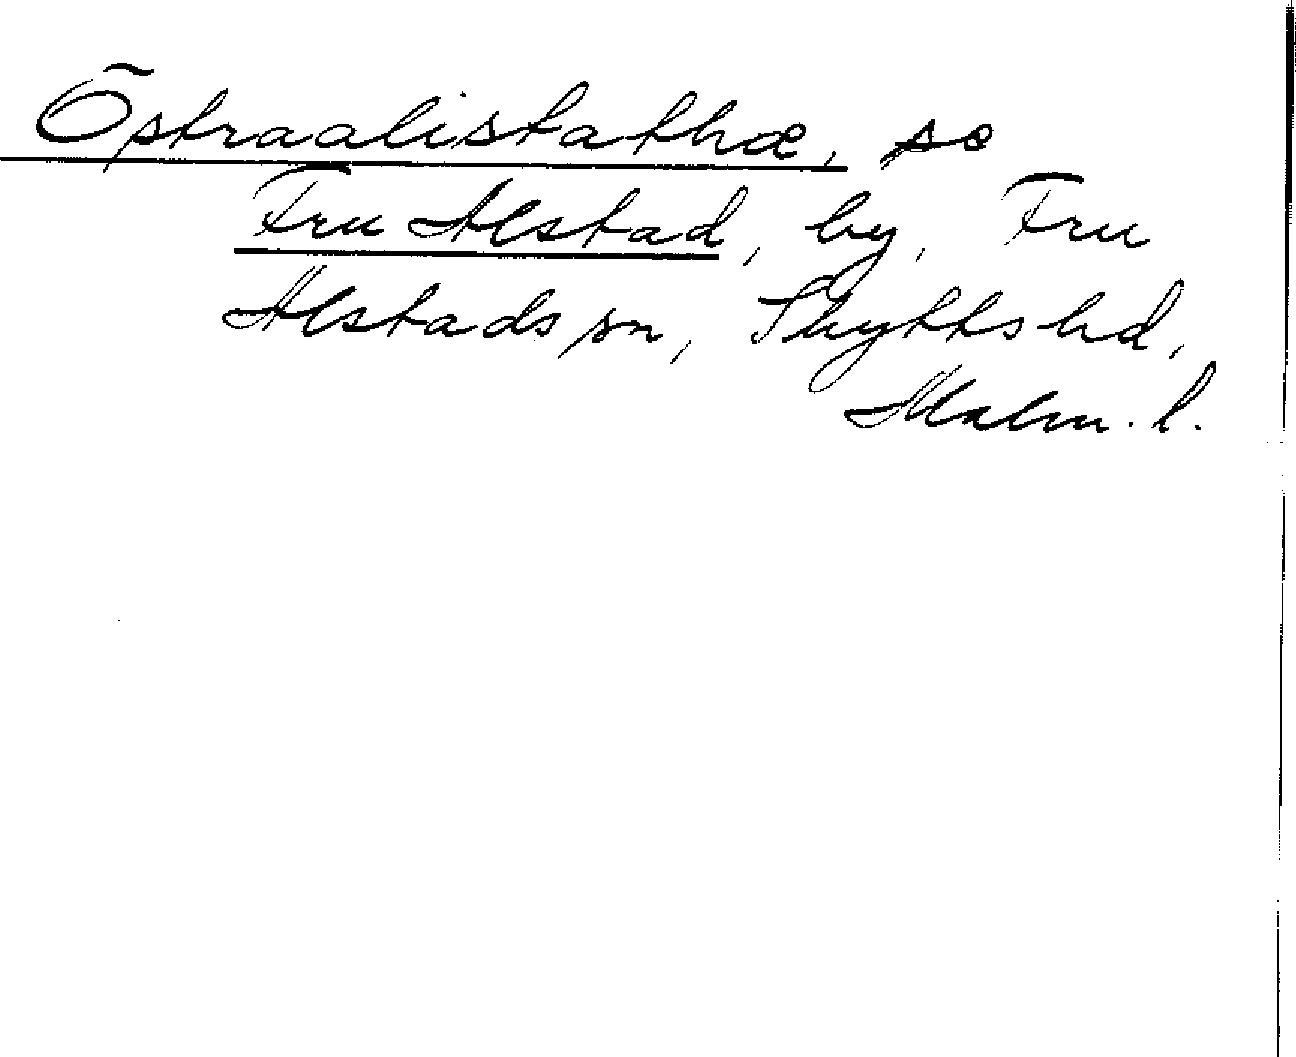 Östraalistathæ, se
Fru Alstad, by, Fru
Alstads sn, Skytts hd,
Malm. l.